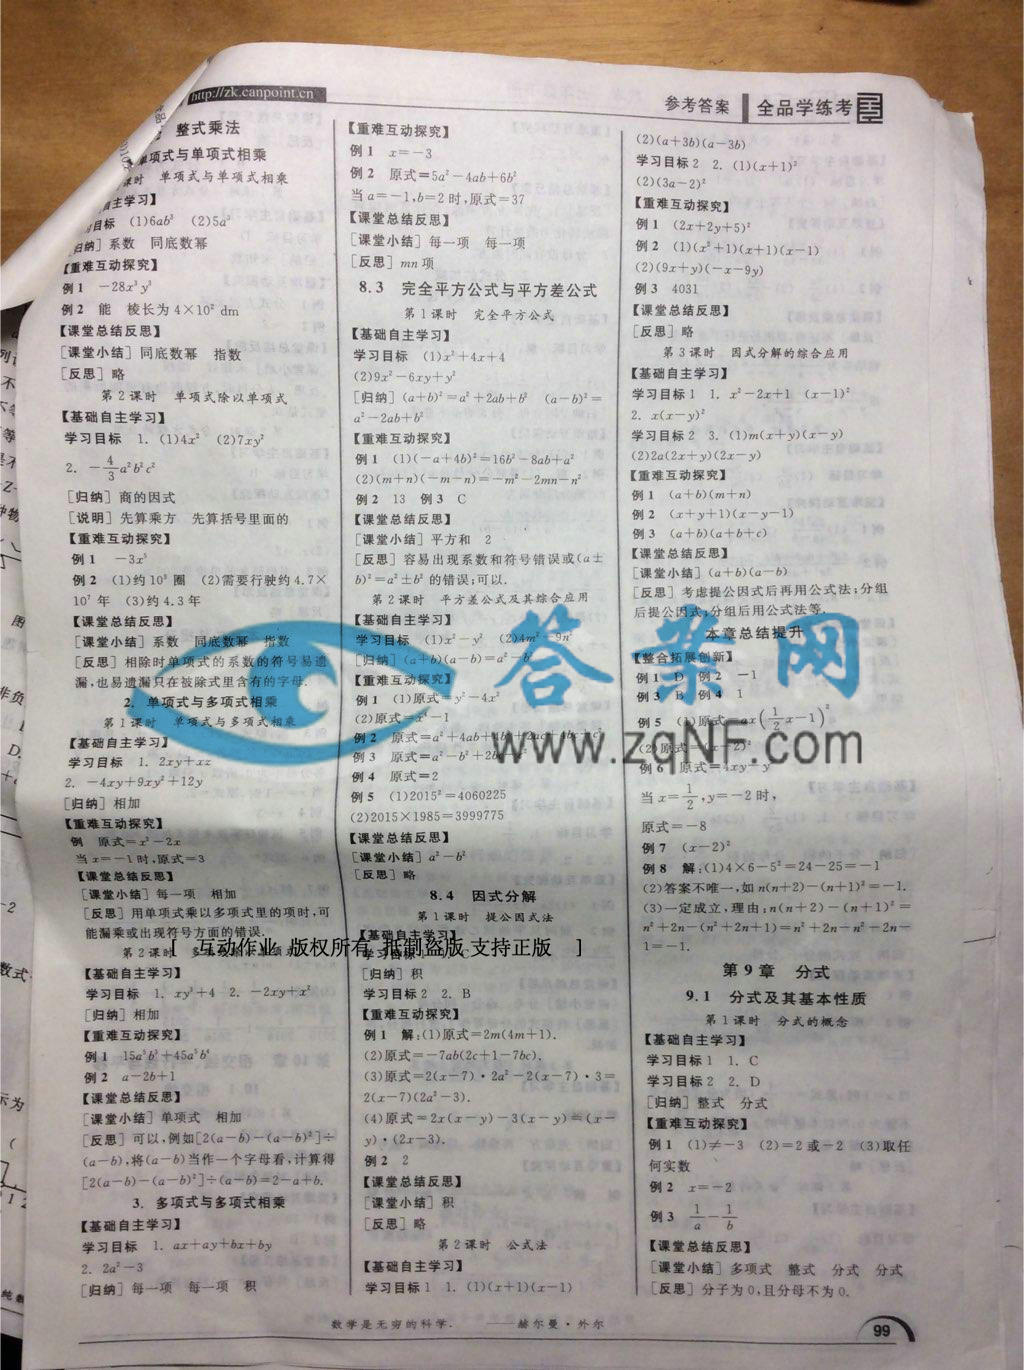 http://zk.canpoint.cn
参考答案 全品学练考
整式乘法
单项式与单项式相乘
课时 单项式与单项式相乘
自主学习】
目标 (1)6ab³ (2)5a³
[归纳] 系数 同底数幂
【重难互动探究】
例1 -28x³y³
例2 能 棱长为4×10² dm
【课堂总结反思】
[课堂小结] 同底数幂 指数
[反思] 略
第2课时 单项式除以单项式
【基础自主学习】
学习目标 1. (1)4x² (2)7xy²
2. -4/3a²b²c²
[归纳] 商的因式
[说明] 先算乘方 先算括号里面的
【重难互动探究】
例1 -3x⁵
例2 (1)约10⁵ 圈 (2)需要行驶约4.7×
10⁷ 年 (3)约4.3年
【课堂总结反思】
[课堂小结] 系数 同底数幂 指数
[反思] 相除时单项式的系数的符号易遗
漏,也易遗漏只在被除式里含有的字母.
2. 单项式与多项式相乘
第1课时 单项式与多项式相乘
【基础自主学习】
学习目标 1. 2xy+xz
2. -4xy+9xy²+12y
[归纳] 相加
【重难互动探究】
例 原式=x²-2x
当x=-1时,原式=3
【课堂总结反思】
[课堂小结] 每一项 相加
[反思] 用单项式乘以多项式里的项时,可
能漏乘或出现符号方面的错误.
第2课时
【基础自主学习】
学习目标 1. xy³+4 2. -2xy+x²
[归纳] 相加
【重难互动探究】
例1 15a⁵b³+45a⁵b⁴
例2 a-2b+1
【课堂总结反思】
[课堂小结] 单项式 相加
[反思] 可以,例如[2(a-b)-(a-b)²]÷
(a-b),将(a-b)当作一个字母看,计算得
[2(a-b)-(a-b)²]÷(a-b)=2-a+b.
3. 多项式与多项式相乘
【基础自主学习】
学习目标 1. ax+ay+bx+by
2. 2a²-3
[归纳] 每一项 每一项 积
【重难互动探究】
例1 x=-3
例2 原式=5a²-4ab+6b²
当a=-1,b=2时,原式=37
【课堂总结反思】
[课堂小结] 每一项 每一项
[反思] mn项
8.3 完全平方公式与平方差公式
第1课时 完全平方公式
【基础自主学习】
学习目标 (1)x²+4x+4
(2)9x²-6xy+y²
[归纳] (a+b)²=a²+2ab+b² (a-b)²=
a²-2ab+b²
【重难互动探究】
例1 (1)(-a+4b)²=16b²-8ab+a²
(2)(m+n)(-m-n)=-m²-2mn-n²
例2 13 例3 C
【课堂总结反思】
[课堂小结] 平方和 2
[反思] 容易出现系数和符号错误或(a±
b)²=a²±b² 的错误;可以.
第2课时 平方差公式及其综合应用
【基础自主学习】
学习目标 (1)x²-y² (2)4m²-9n²
[归纳] (a+b)(a-b)=a²-b²
【重难互动探究】
例1 (1)原式=y²-4x²
(2)原式=x⁴-1
例2 原式=a²+4ab+4b²
例3 原式=a²-b²+2b
例4 原式=2
例5 (1)2015²=4060225
(2)2015×1985=3999775
【课堂总结反思】
[课堂小结] a²-b²
[反思] 略
8.4 因式分解
第1课时 提公因式法
【基础自主学习】
学习目标
[归纳] 积
学习目标2 2. B
【重难互动探究】
例1 解:(1)原式=2m(4m+1).
(2)原式=-7ab(2c+1-7bc).
(3)原式=2(x-7)·2a²-2(x-7)·3=
2(x-7)(2a²-3).
(4)原式=2x(x-y)-3(x-y)=(x-
y)·(2x-3).
例2 2
【课堂总结反思】
[课堂小结] 积
[反思] 略
第2课时 公式法
【基础自主学习】
学习目标1 1. (1)(x+1)(x-1)
(2)(a+3b)(a-3b)
学习目标2 2. (1)(x+1)²
(2)(3a-2)²
【重难互动探究】
例1 (2x+2y+5)²
例2 (1)(x²+1)(x+1)(x-1)
(2)(9x+y)(-x-9y)
例3 4031
【课堂总结反思】
[反思] 略
第3课时 因式分解的综合应用
【基础自主学习】
学习目标1 1. x²-2x+1 (x-1)²
2. x(x-y)²
学习目标2 3. (1)m(x+y)(x-y)
(2)2a(2x+y)(2x-y)
【重难互动探究】
例1 (a+b)(m+n)
例2 (x+y+1)(x-y-1)
例3 (a+b)(a+b+c)
【课堂总结反思】
[课堂小结] (a+b)(a-b)
[反思] 考虑提公因式后再用公式法;分组
后提公因式;分组后用公式法等.
本章总结提升
【整合拓展创新】
例1 D 例2 -1
例3 B 例4 1
例5 (1)原式=ax(1/2x-1)²
(2)原式=(x-2)²
例6 原式=4xy-y²
当x=1/2,y=-2时,
原式=-8
例7 (x-2)²
例8 解:(1)4×6-5²=24-25=-1
(2)答案不唯一,如n(n+2)-(n+1)²=-1.
(3)一定成立,理由:n(n+2)-(n+1)²=
n²+2n-(n²+2n+1)=n²+2n-n²-2n-
1=-1.
第9章 分式
9.1 分式及其基本性质
第1课时 分式的概念
【基础自主学习】
学习目标1 1. C
学习目标2 2. D
[归纳] 整式 分式
【重难互动探究】
例1 (1)≠-3 (2)=2或-2 (3)取任
何实数
例2 x=-2
例3 1/a-1/b
【课堂总结反思】
[课堂小结] 多项式 整式 分式 分式
[反思] 分子为0,且分母不为0.
数学是无穷的科学. ——赫尔曼·外尔
99
答案网
www.zqNF.com
[ 互动作业 版权所有 抵制盗版 支持正版 ]